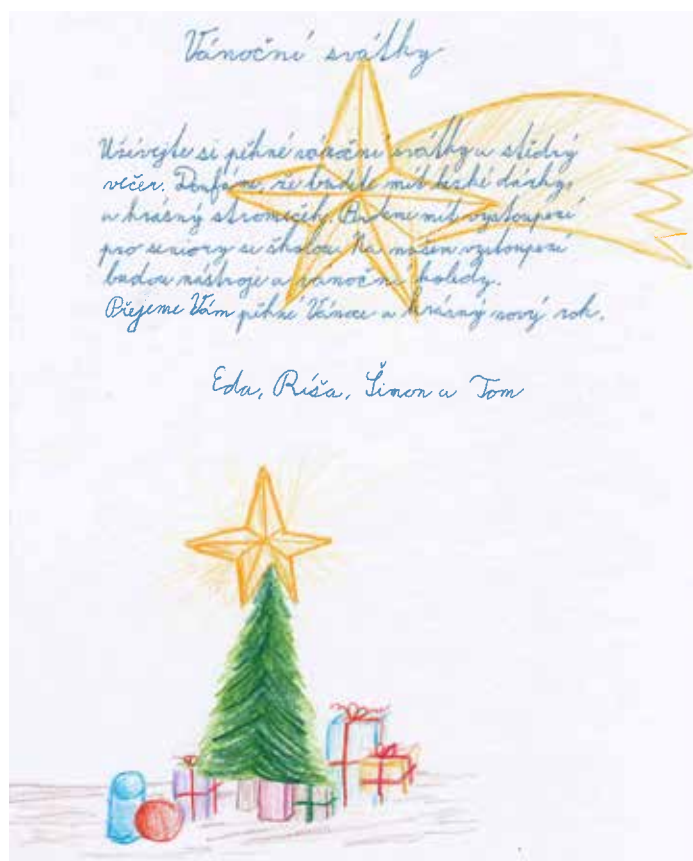 Vánoční svátky
Užívejte si pěkné vánoční svátky a štědrý
večer. Doufáme, že budete mít hezké dárky,
a krásný stromeček. Budeme mít vystoupení
pro seniory se školou. Na našem vystoupení
budou nástroje a vánoční koledy.
Přejeme Vám pěkné Vánoce a krásný nový rok.
Eda, Ríša, Šimon a Tom